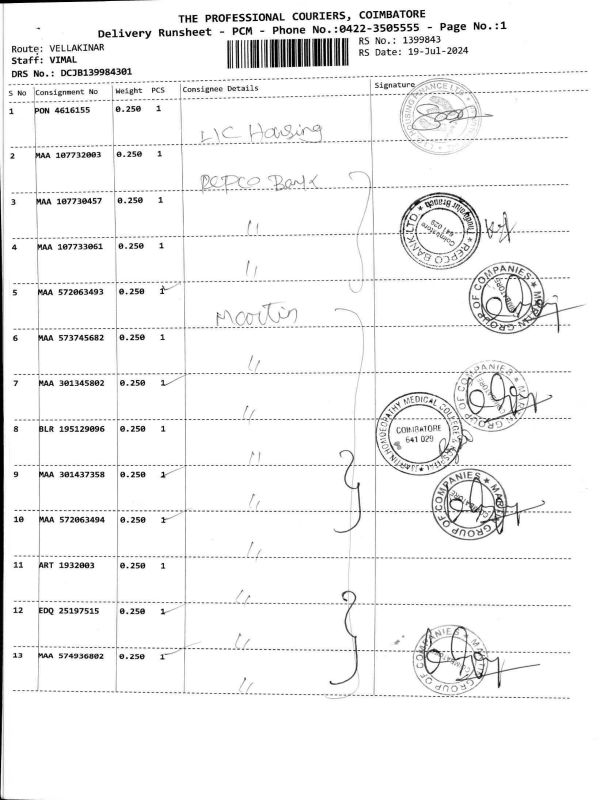 THE PROFESSIONAL COURIERS, COIMBATORE
Delivery Runsheet - PCM - Phone No.:0422-3505555 - Page No.:1
Route: VELLAKINAR
RS No.: 1399843
Staff: VIMAL
RS Date: 19-Jul-2024
DRS No.: DCJB139984301
S No Consignment No Weight PCS Consignee Details Signature
1 PON 4616155 0.250 1 LIC Housing
2 MAA 107732003 0.250 1 REPCO Bank
3 MAA 107730457 0.250 1 "
REPCO BANK LTD. ★ Thudiyalur Branch
Coimbatore
641 029
4 MAA 107733061 0.250 1 "
5 MAA 572063493 0.250 1 Martin
MARTIN GROUP OF COMPANIES ★
6 MAA 573745682 0.250 1 "
7 MAA 301345802 0.250 1 "
8 BLR 195129096 0.250 1 "
MARTIN HOMOEOPATHY MEDICAL COLLEGE & HOSPITAL ★
COIMBATORE
641 029
9 MAA 301437358 0.250 1 "
MARTIN GROUP OF COMPANIES ★
COIMBATORE
10 MAA 572063494 0.250 1 "
11 ART 1932003 0.250 1 "
12 EDQ 25197515 0.250 1 "
13 MAA 574936802 0.250 1 "